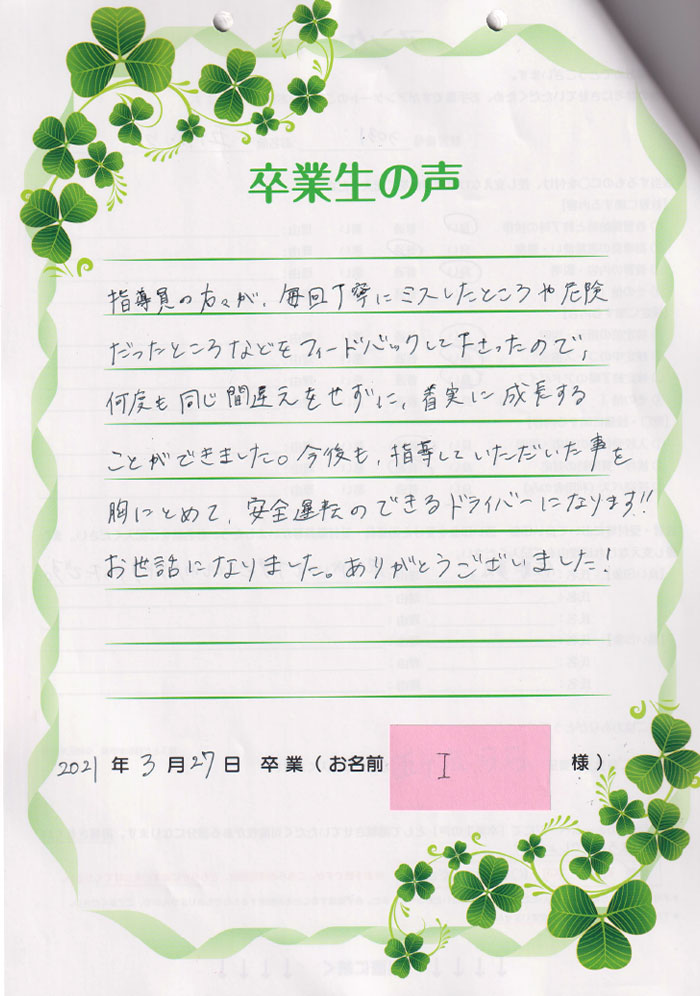 卒業生の声
指導員の方々が、毎回丁寧にミスしたところや危険
だったところなどをフィードバックして下さったので、
何度も同じ間違えをせずに、着実に成長する
ことができました。今後も、指導していただいた事を
胸にとめて、安全運転のできるドライバーになります!!
お世話になりました。ありがとうございました!
2021年3月27日 卒業(お名前 I 様)